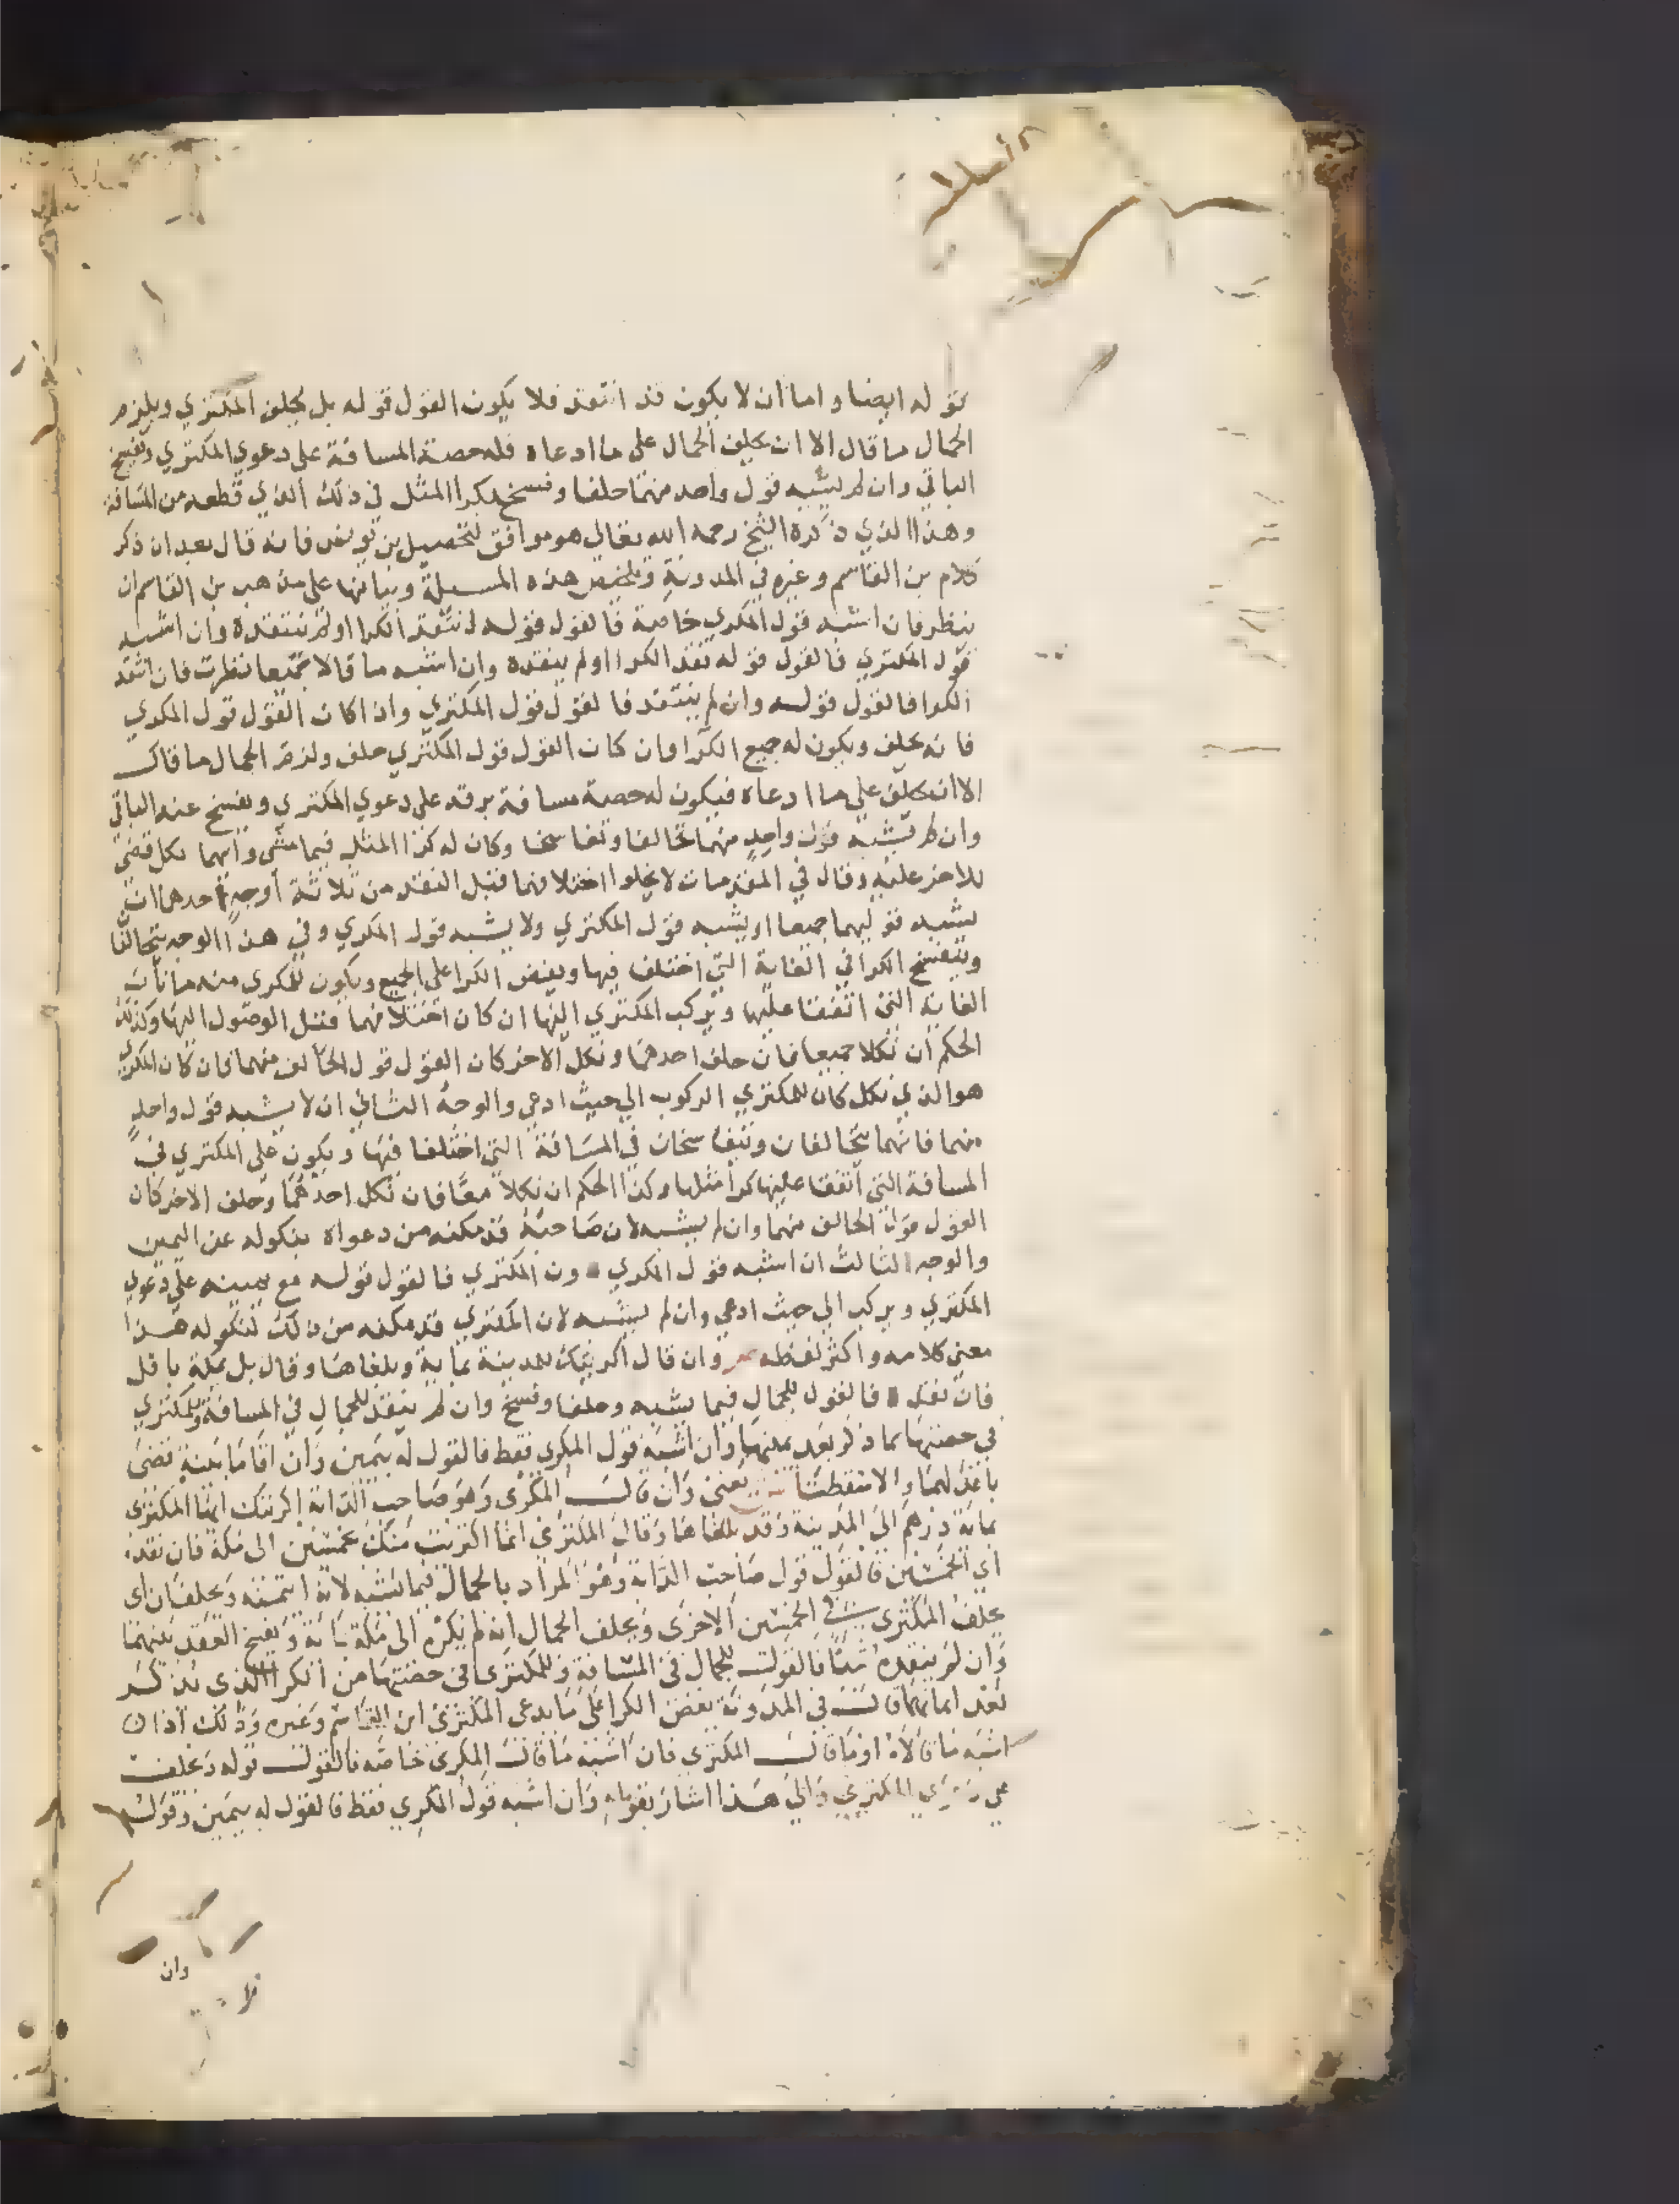 قوله ايضا واما ان لا يكون قد انتقد فلا يكون القول قوله بل يحلف المكتري ويلزم
الجمال ما قال الا ان يحلف الجمال على ما ادعاه فله حصة المسافة على دعوي المكتري ويفسخ
الباقي وان لم يشبه قول واحد منهما حلفا وفسخ بكرا المثل في ذلك الذي قطعه من المسافة
وهذا الذي ذكره الشيخ رحمه الله تعالي هو موافق لتحصيل بن يونس فانه قال بعد ان ذكر
كلام بن القاسم وغيره في المدونة وتلخيص هذه المسيلة وبيانها على مذهب بن القاسم ان
ينظر فان اشبه قول المكري خاصة فالقول قوله انتقد الكرا او لم ينتقده وان اشبه
قول المكتري فالقول قوله نقد الكرا او لم ينقده وان اشبه ما قالا جميعا نظرت فان انتقد
الكرا فالقول قوله وان لم ينتقد فالقول قول المكتري واذا كان القول قول المكري
فانه يحلف ويكون له جميع الكرا وان كان القول قول المكتري حلف ولزم الجمال ما قال
الا ان يحلف علي ما ادعاه فيكون له حصة مسافة برقه على دعوي المكتري ويفسخ عنه الباقي
وان لم يشبه قول واحد منهما تحالفا وتفاسخا وكان له كرا المثل فيما مشي وايهما نكل قضي
للاخر عليه وقال في المقدمات لا يخلوا اختلافهما قبل النقد من ثلاثة اوجه احدها ان
يشبه قوليهما جميعا او يشبه قول المكتري ولا يشبه قول المكري وفي هذا الوجه يتحالفا
وينفسخ الكرا في الغاية التي اختلفا فيها ويفض الكرا على الجميع ويكون للمكري منه ما نابت
الغاية التي اتفقا عليها ويركب المكتري اليها ان كان اختلافهما قبل الوصول اليها وكذلك
الحكم ان نكلا جميعا فان حلف احدهما ونكل الاخر كان القول قول الحالف منهما فان كان المكري
هو الذي نكل كان للمكتري الركوب الي حيث ادعي والوجه الثاني ان لا يشبه قول واحد
منهما فانهما يتحالفان ويتفاسخان في المسافة التي اختلفا فيها ويكون على المكتري في
المسافة التي اتفقا عليها كرا مثلها وكذا الحكم ان نكلا معا فان نكل احدهما وحلف الاخر كان
القول قول الحالف منهما وان لم يشبه لان صاحبه قد مكنه من دعواه بنكوله عن اليمين
والوجه الثالث ان اشبه قول المكري دون المكتري فالقول قوله مع يمينه على دعوي
المكتري ويركب الي حيث ادعي وان لم يشبه لان المكتري قد مكنه من ذلك لنكوله هذا
معني كلامه واكثر لفظه وان قال اكريتك للمدينة بماية وبلغاها وقال بل بمكة باقل
فان نقد فالقول للجمال فيما يشبه وحلفا وفسخ وان لم ينقد للجمال في المسافة وللمكتري
في حصتها مما ذكر بعد يمينهما وان اشبه قول المكري فقط فالقول له بيمين وان اقاما بينة قضي
باعدلهما والا سقطتا يعني وان قال المكري وهو صاحب الدابة اكريتك ايها المكتري
بماية درهم الى المدينة وقد بلغاها وقال المكتري انما اكتريت منك بخمسين الى مكة فان نقده
اي الخمسين فالقول قول صاحب الدابة وهو المراد بالجمال فيما يشبه لانه ايتمنه ويحلفان اي
يحلف المكتري في الخمسين الاخرى ويحلف الجمال انه لم يكره الى مكة بماية ويفسخ العقد بينهما
وان لم ينقده شيئا فالقول للجمال في المسافة وللمكتري في حصتها من الكرا الذي يذكر
بعد ايمانهما قال في المدونة يفض الكرا على ما يدعي المكتري ابن القاسم وغيره وذلك اذا
اشبه ما قالاه او ما قال المكتري فان اشبه ما قال المكري خاصة فالقول قوله ويحلف
المكتري والي هذا اشار بقوله وان اشبه قول المكري فقط فالقول له بيمين وقوله
وان